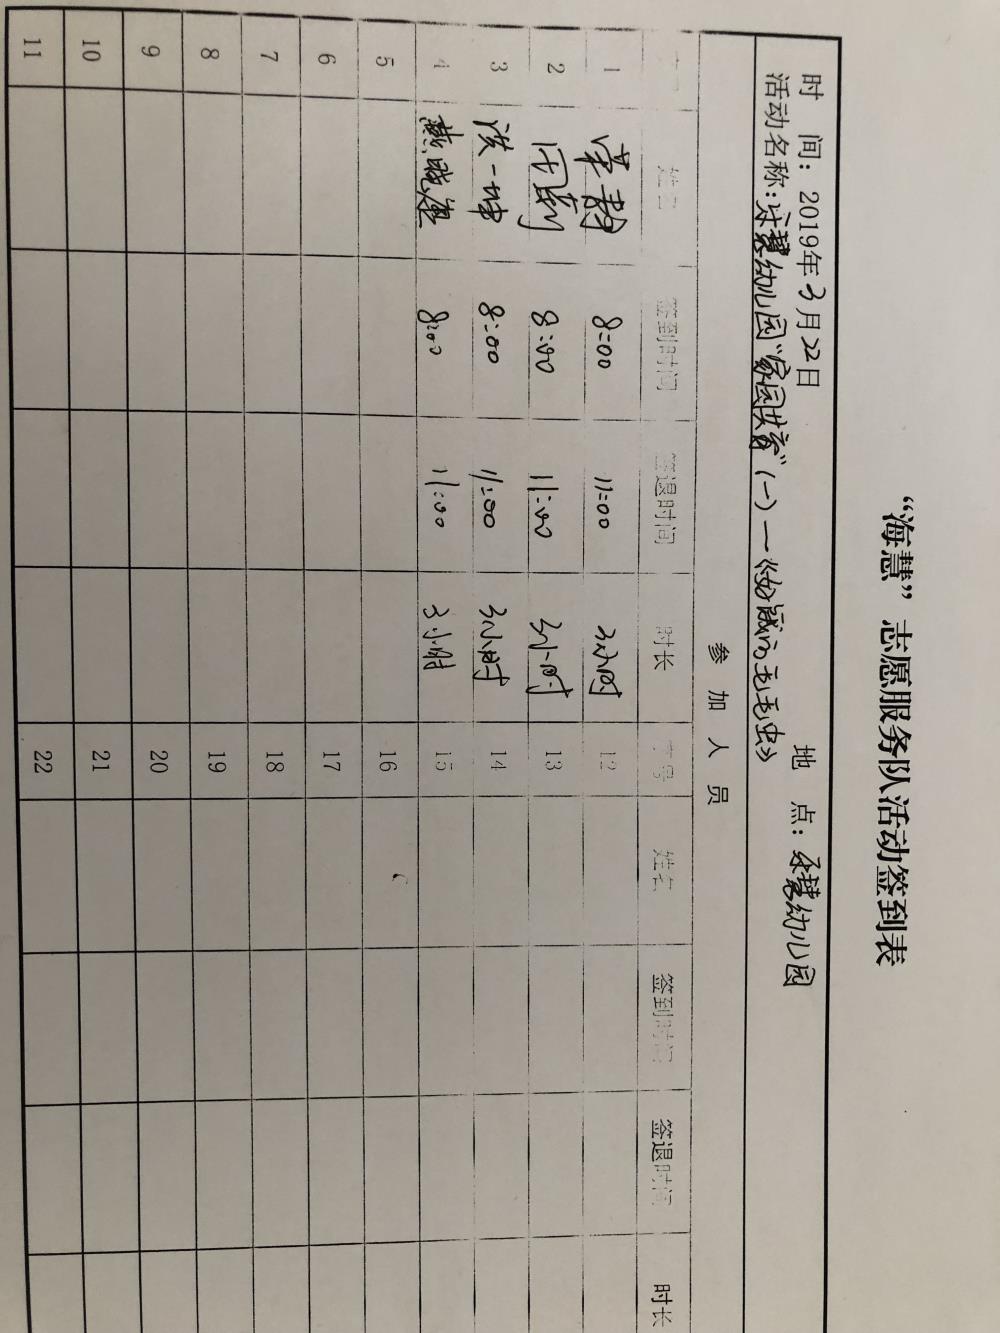 “海慧”志愿服务队活动签到表
时 间：2019年3月22日 地 点：永慧幼儿园
活动名称：永慧幼儿园“家园共育”（一）—《好饿的毛毛虫》
参加人员
姓名 签到时间 签退时间 时长 序号 姓名 签到时间 签退时间 时长
1 8:00 11:00 3小时 12
2 8:00 11:00 3小时 13
3 洪一坤 8:00 11:00 3小时 14
4 燕晓康 8:00 11:00 3小时 15
5 16
6 17
7 18
8 19
9 20
10 21
11 22